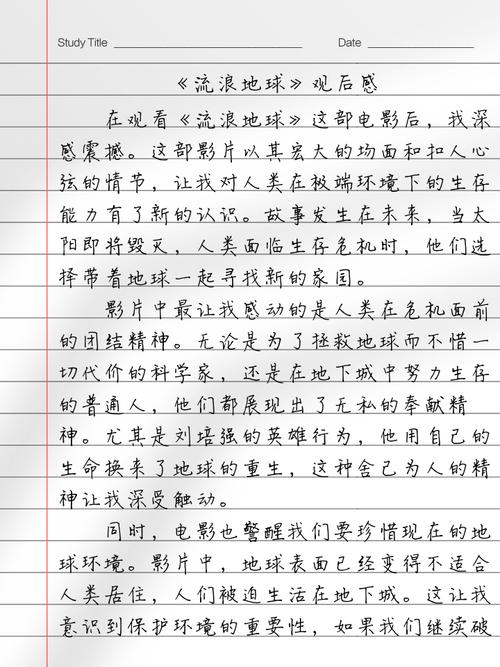 Study Title Date
《流浪地球》观后感
在观看《流浪地球》这部电影后，我深
感震撼。这部影片以其宏大的场面和扣人心
弦的情节，让我对人类在极端环境下的生存
能力有了新的认识。故事发生在未来，当太
阳即将毁灭，人类面临生存危机时，他们选
择带着地球一起寻找新的家园。
影片中最让我感动的是人类在危机面前
的团结精神。无论是为了拯救地球而不惜一
切代价的科学家，还是在地下城中努力生存
的普通人，他们都展现出了无私的奉献精
神。尤其是刘培强的英雄行为，他用自己的
生命换来了地球的重生，这种舍己为人的精
神让我深受触动。
同时，电影也警醒我们要珍惜现在的地
球环境。影片中，地球表面已经变得不适合
人类居住，人们被迫生活在地下城。这让我
意识到保护环境的重要性，如果我们继续破